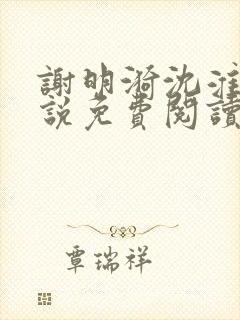 謝明漪沈淮
說免費閱讀
覃瑞祥